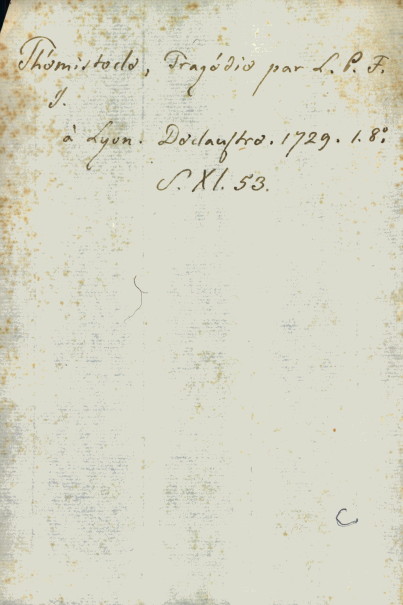 Thémistocle, Tragédie par L. P. F.
J.
à Lyon. Declaustre. 1729. 1. 8º.
S. XI. 53.